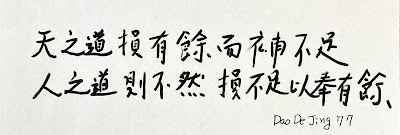 天之道損有餘、而補不足
人之道則不然、損不足以奉有餘、
Dao De Jing 77